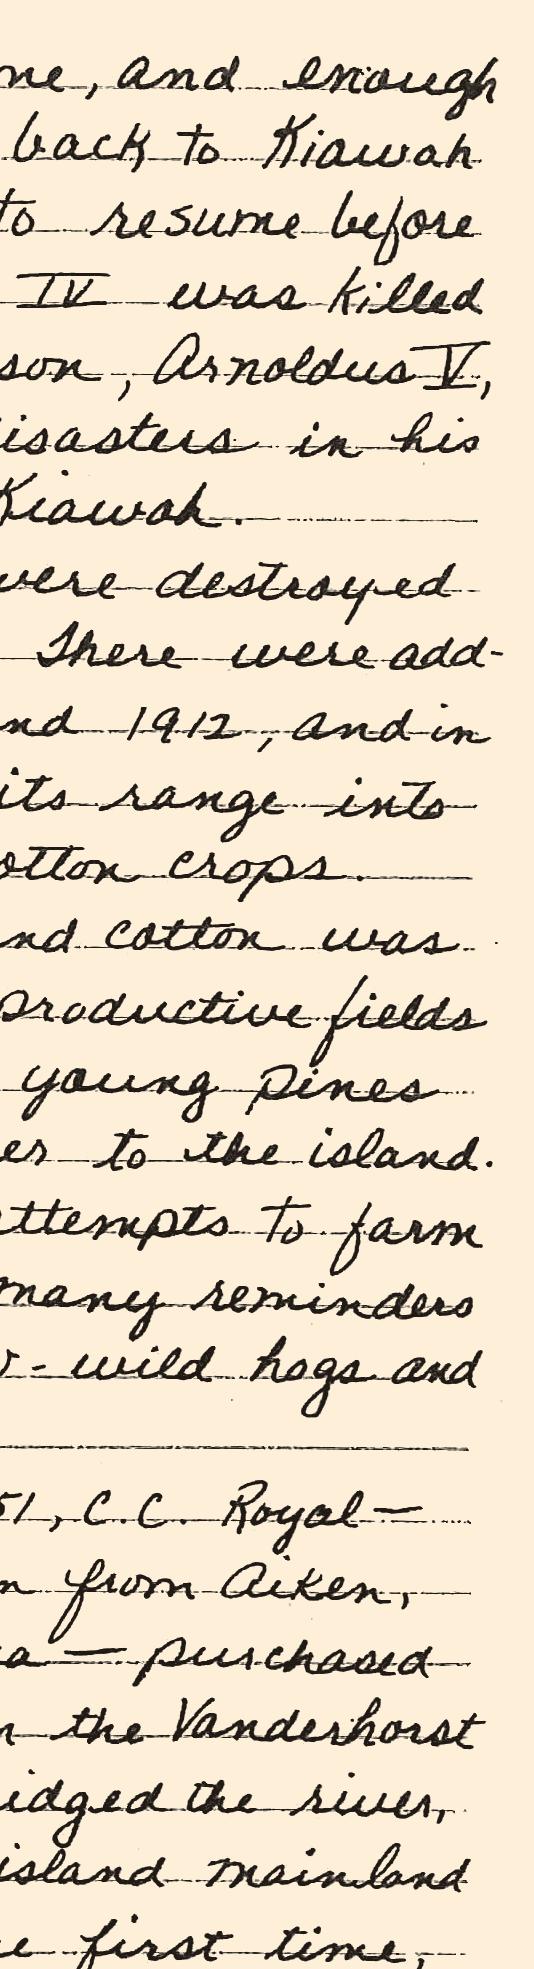 me, and enough
back to Kiawah
to resume before
IV was killed
son, Arnoldus V,
isasters in his
Kiawah.
were destroyed
There were add-
nd 1912, and in
its range into
otton crops.
nd cotton was
productive fields
young pines
er to the island.
ttempts to farm
many reminders
- wild hogs and
51, C.C. Royal -
n from Aiken,
a - purchased
n the Vanderhorst
idged the river,
island mainland
e first time,